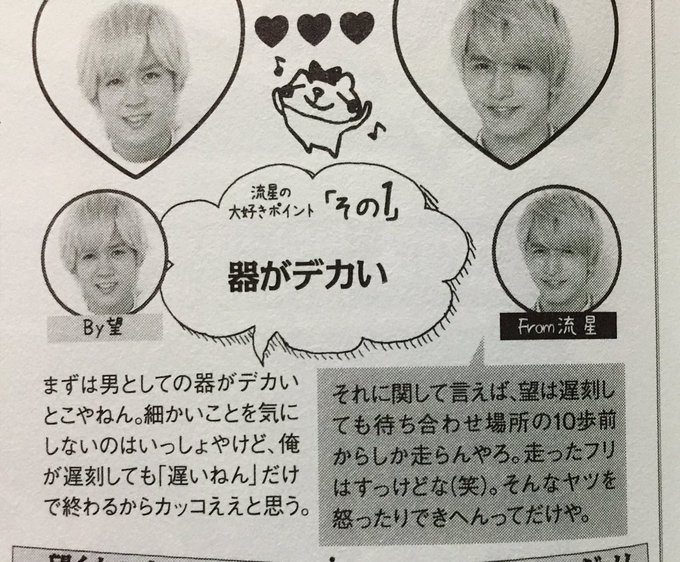 流星の
大好きポイント「その1」
器がデカい
By望
From流星
まずは男としての器がデカい
とこやねん。細かいことを気に
しないのはいっしょやけど、俺
が遅刻しても「遅いねん」だけ
で終わるからカッコええと思う。
それに関して言えば、望は遅刻し
ても待ち合わせ場所の10歩前
からしか走らんやろ。走ったフリ
はすっけどな(笑)。そんなヤツを
怒ったりできへんってだけや。